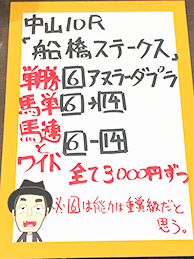 中山10R
「船橋ステークス」
単勝 6 アヌラーダプラ
馬単 6→14
馬連とワイド 6-14
全て3000円ずつ
※6は能力は重賞級だと思う。